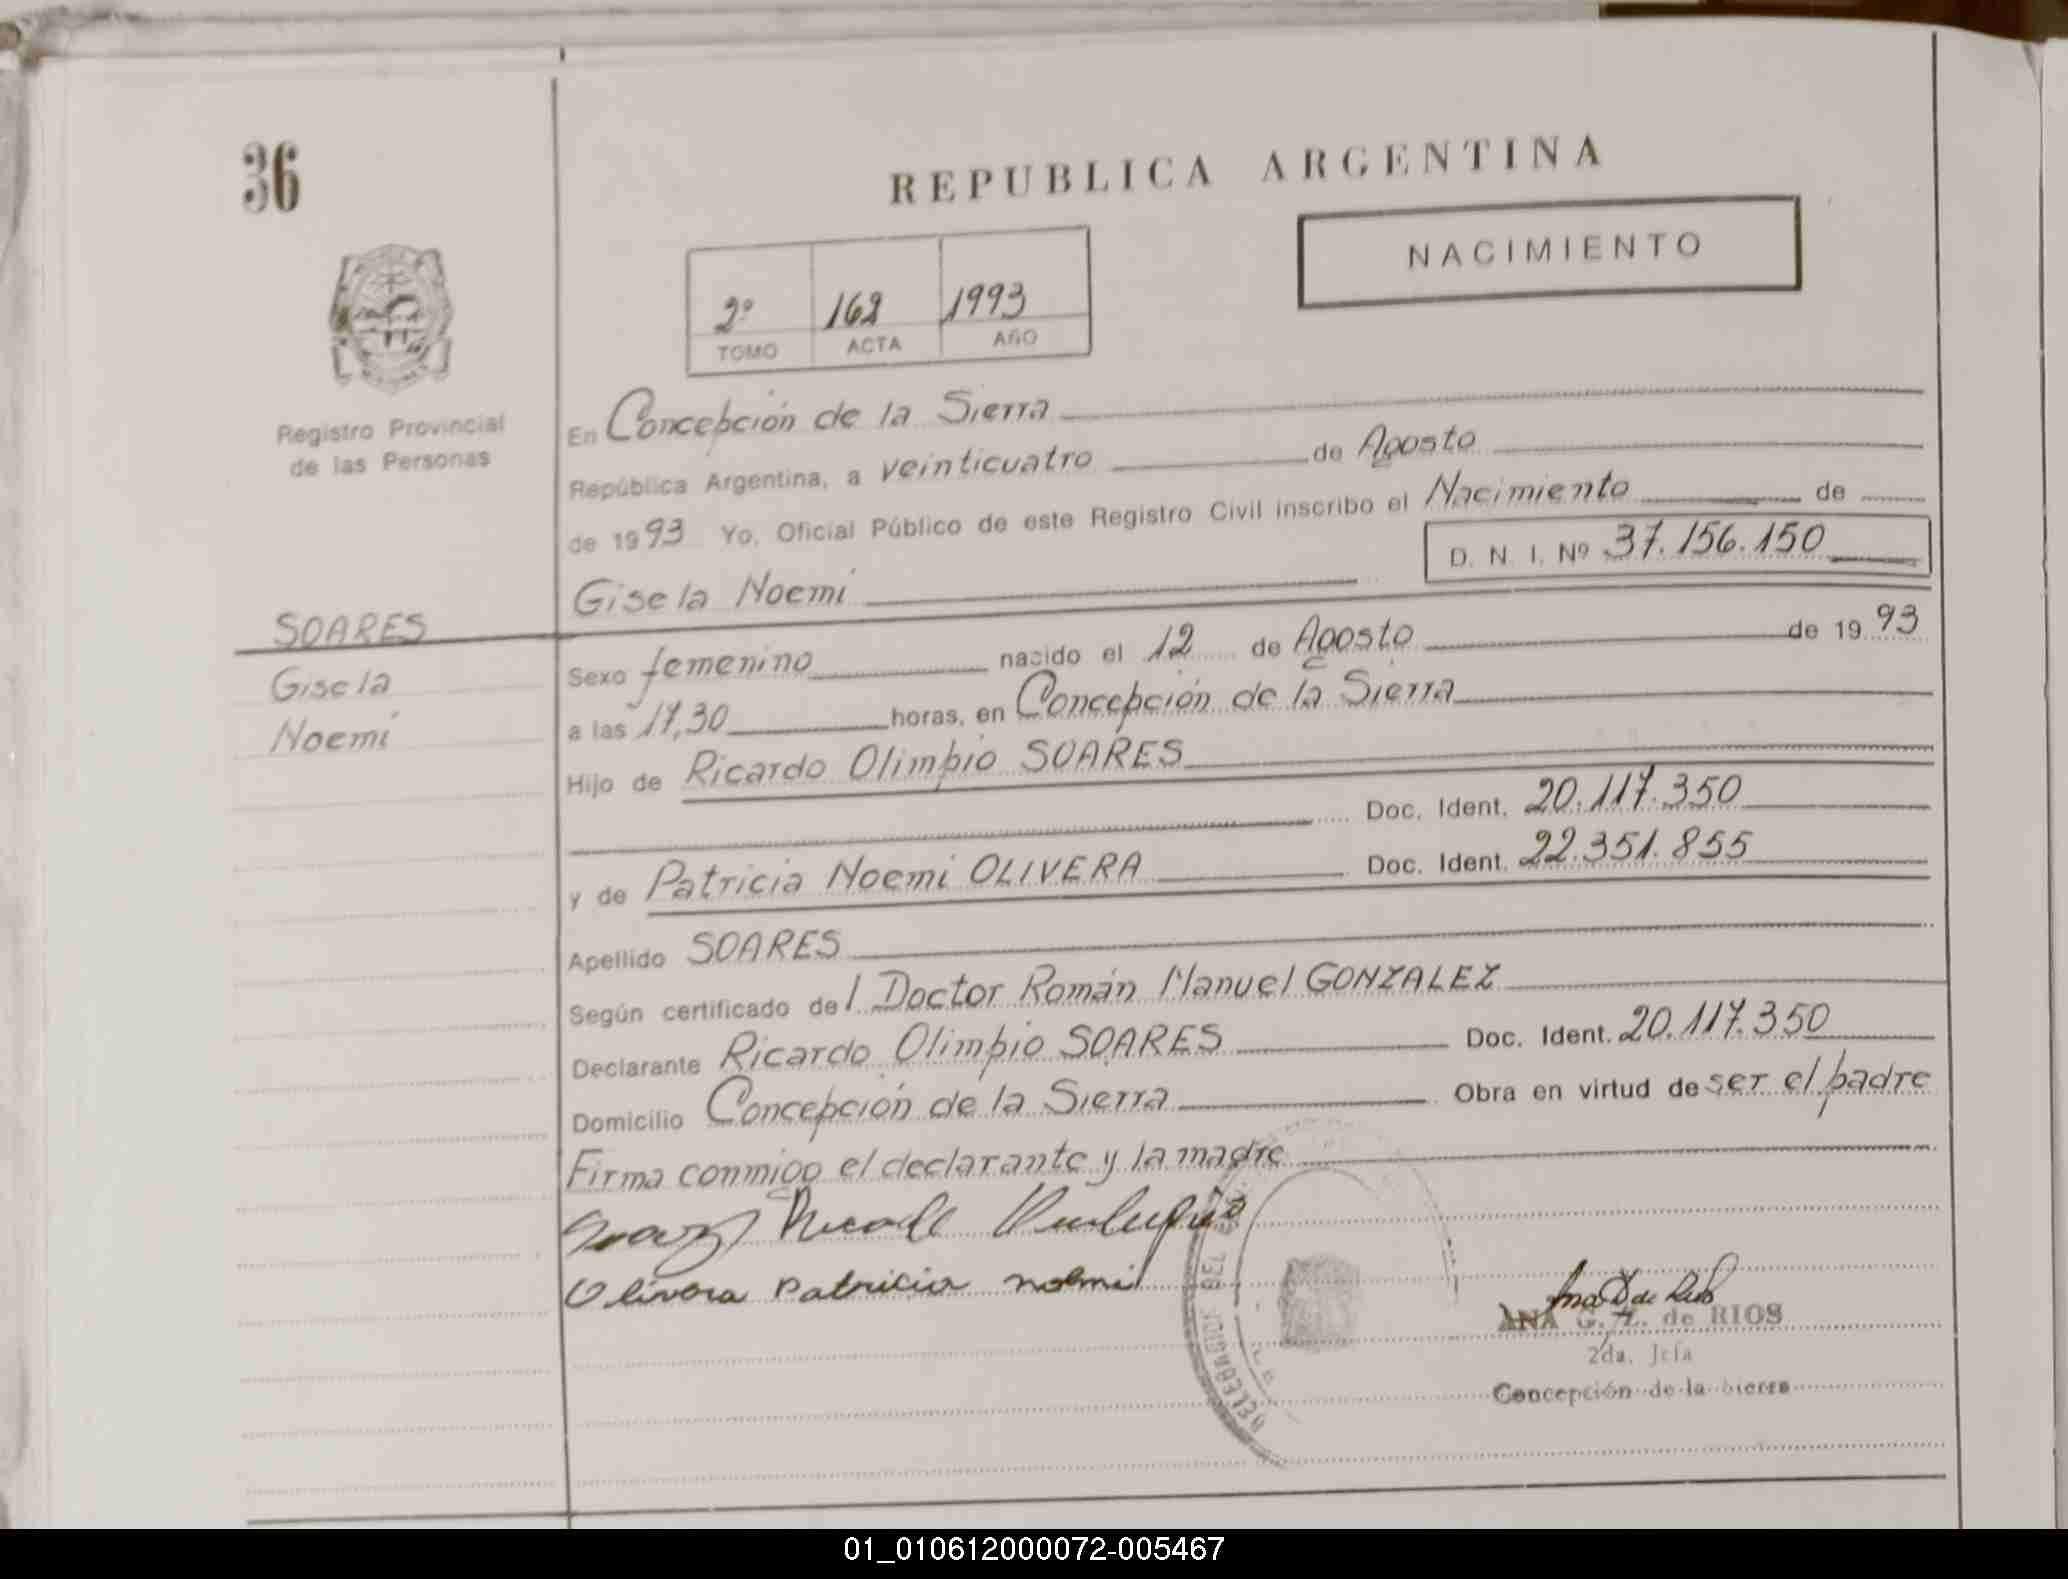 36
REPUBLICA ARGENTINA
NACIMIENTO
2º 162 1993
TOMO ACTA AÑO
Registro Provincial
de las Personas
En Concepción de la Sierra
República Argentina, a veinticuatro de Agosto
de 1993 Yo, Oficial Público de este Registro Civil inscribo el Nacimiento de
D. N. I. Nº 37.156.150
Gisela Noemi
SOARES
Gisela
Noemi
Sexo femenino nacido el 12 de Agosto de 1993
a las 17,30 horas, en Concepción de la Sierra
Hijo de Ricardo Olimpio SOARES
Doc. Ident. 20.117.350
y de Patricia Noemi OLIVERA Doc. Ident. 22.351.855
Apellido SOARES
Según certificado del Doctor Román Manuel GONZALEZ
Declarante Ricardo Olimpio SOARES Doc. Ident. 20.117.350
Domicilio Concepción de la Sierra Obra en virtud de ser el padre
Firma conmigo el declarante y la madre
Olivera Patricia noemi
ANA G. de RIOS
2da. Jcia
Concepción de la Sierra
01_010612000072-005467